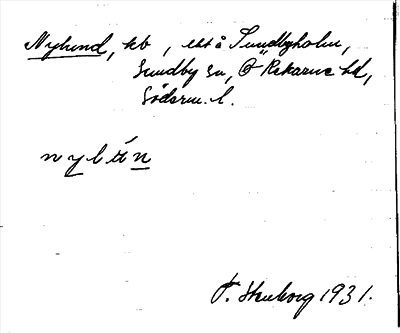 Nylund, tb, ebt å Sundbyholm,
Sundby sn, Ö Rekarne hd,
Söderm. l.
nylún
F. Stenborg 1931.